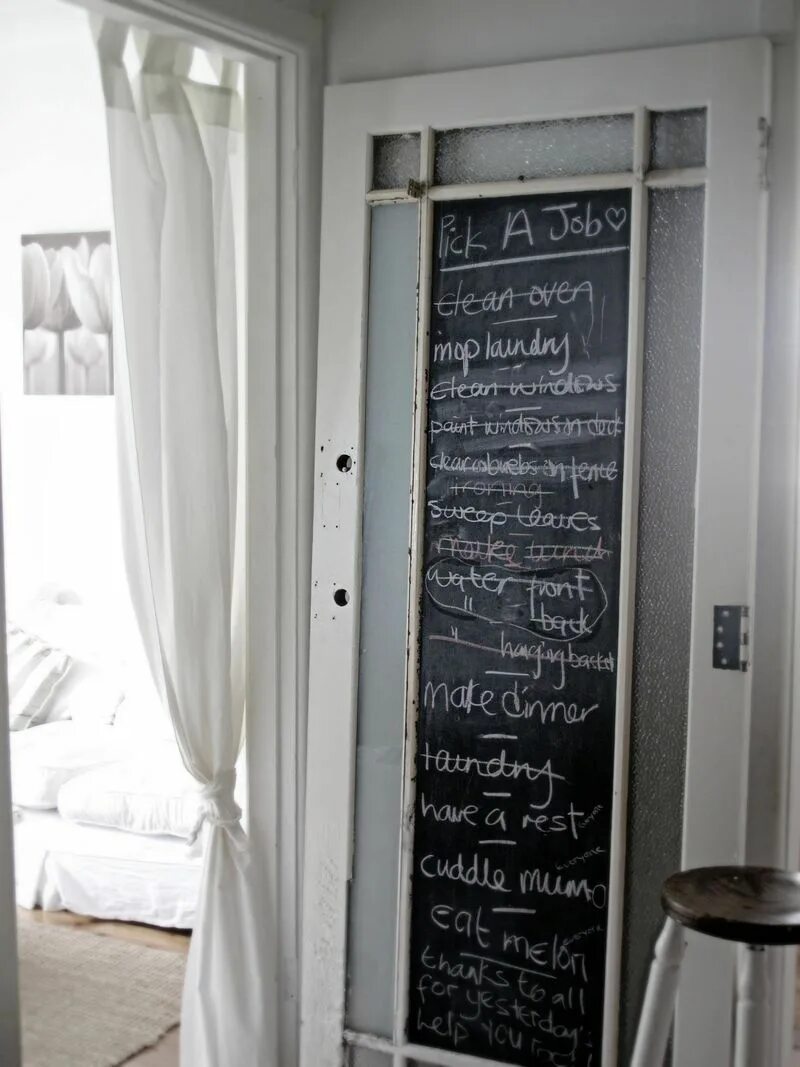 Pick A Job♡
clean oven
mop laundry
clean windows
paint windows on deck
clear cobwebs on fence
ironing
sweep leaves
make brunch
water front
" back
" hanging basket
make dinner
laundry
have a rest everyone
everyone
cuddle mum
eat melon everyone
thanks to all
for yesterday's
help you